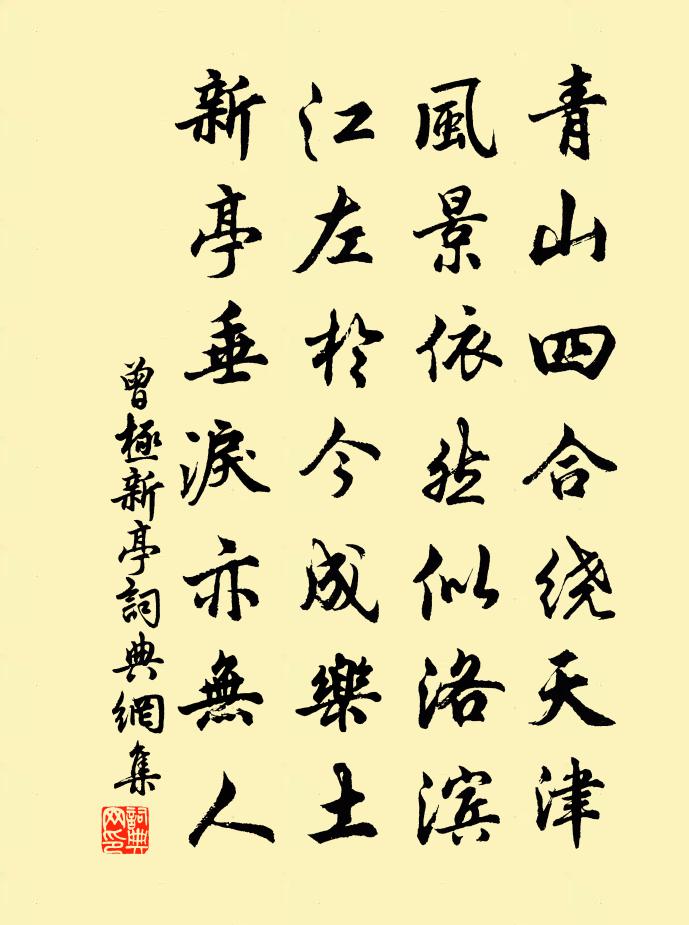 青山四合绕天津
風景依然似洛滨
江左於今成樂土
新亭垂淚亦無人
曾極新亭詞典網集
詞典网印